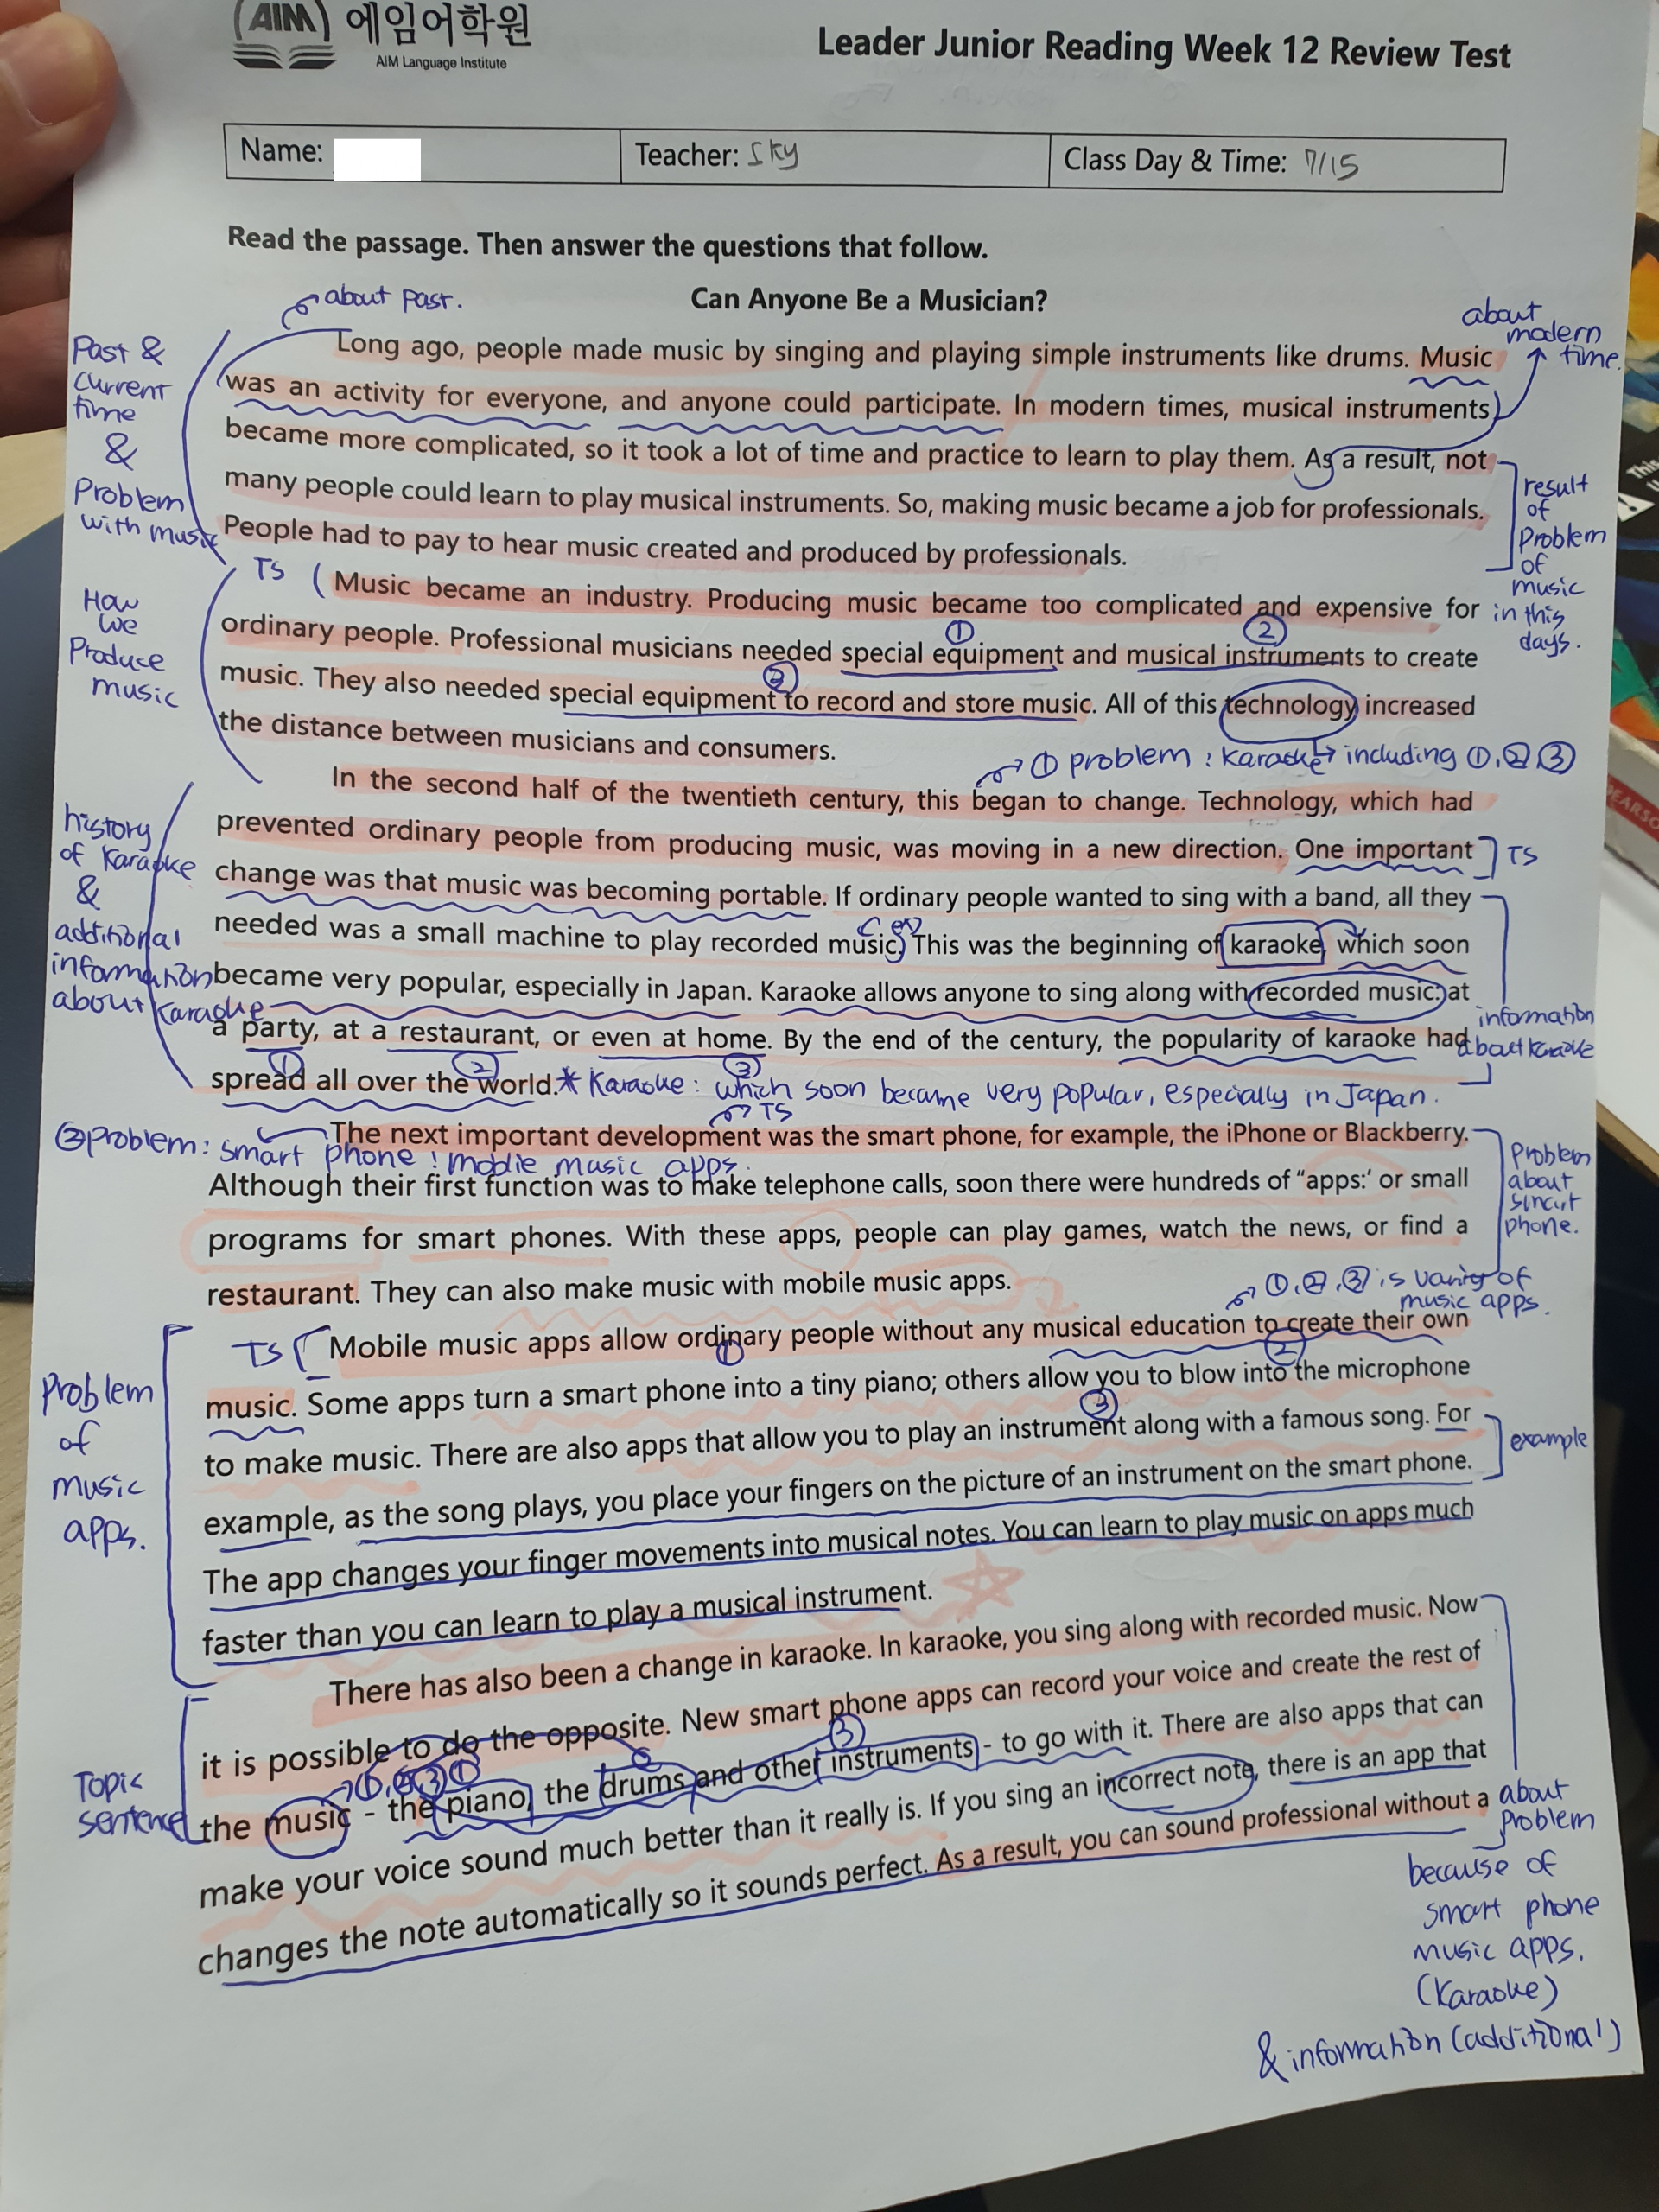 (AIM) 에임어학원
AIM Language Institute
Leader Junior Reading Week 12 Review Test
Name:
Teacher: Sky
Class Day & Time: 7/15
Read the passage. Then answer the questions that follow.
about past.
Can Anyone Be a Musician?
about
modern
time.
Past &
current
time
&
Problem
with music
Long ago, people made music by singing and playing simple instruments like drums. Music
was an activity for everyone, and anyone could participate. In modern times, musical instruments
became more complicated, so it took a lot of time and practice to learn to play them. As a result, not
many people could learn to play musical instruments. So, making music became a job for professionals.
People had to pay to hear music created and produced by professionals.
result
of
Problem
of
music
in this
days.
TS
How
we
Produce
music
Music became an industry. Producing music became too complicated and expensive for
ordinary people. Professional musicians needed special equipment and musical instruments to create
① ②
music. They also needed special equipment to record and store music. All of this technology increased
the distance between musicians and consumers.
① problem : karaoke including ①, ②, ③
history
of karaoke
&
additional
information
about karaoke
In the second half of the twentieth century, this began to change. Technology, which had
prevented ordinary people from producing music, was moving in a new direction. One important
TS
change was that music was becoming portable. If ordinary people wanted to sing with a band, all they
needed was a small machine to play recorded music. This was the beginning of karaoke, which soon
became very popular, especially in Japan. Karaoke allows anyone to sing along with recorded music: at
a party, at a restaurant, or even at home. By the end of the century, the popularity of karaoke had
① ② ③
information
about karaoke
spread all over the world.
* Karaoke : which soon became very popular, especially in Japan.
TS
② problem : smart phone : moblie music apps.
The next important development was the smart phone, for example, the iPhone or Blackberry.
Although their first function was to make telephone calls, soon there were hundreds of “apps:’ or small
programs for smart phones. With these apps, people can play games, watch the news, or find a
restaurant. They can also make music with mobile music apps.
Problem
about
smart
phone.
①, ②, ③ is varity of
music apps.
TS
Problem
of
music
apps.
Mobile music apps allow ordinary people without any musical education to create their own
① ②
music. Some apps turn a smart phone into a tiny piano; others allow you to blow into the microphone
③
to make music. There are also apps that allow you to play an instrument along with a famous song. For
example, as the song plays, you place your fingers on the picture of an instrument on the smart phone.
example
The app changes your finger movements into musical notes. You can learn to play music on apps much
faster than you can learn to play a musical instrument.
Topic
sentence
There has also been a change in karaoke. In karaoke, you sing along with recorded music. Now
it is possible to do the opposite. New smart phone apps can record your voice and create the rest of
the music - the piano, the drums and other instruments - to go with it. There are also apps that can
make your voice sound much better than it really is. If you sing an incorrect note, there is an app that
changes the note automatically so it sounds perfect. As a result, you can sound professional without a
about
problem
because of
smart phone
music apps.
(karaoke)
& information (additional)